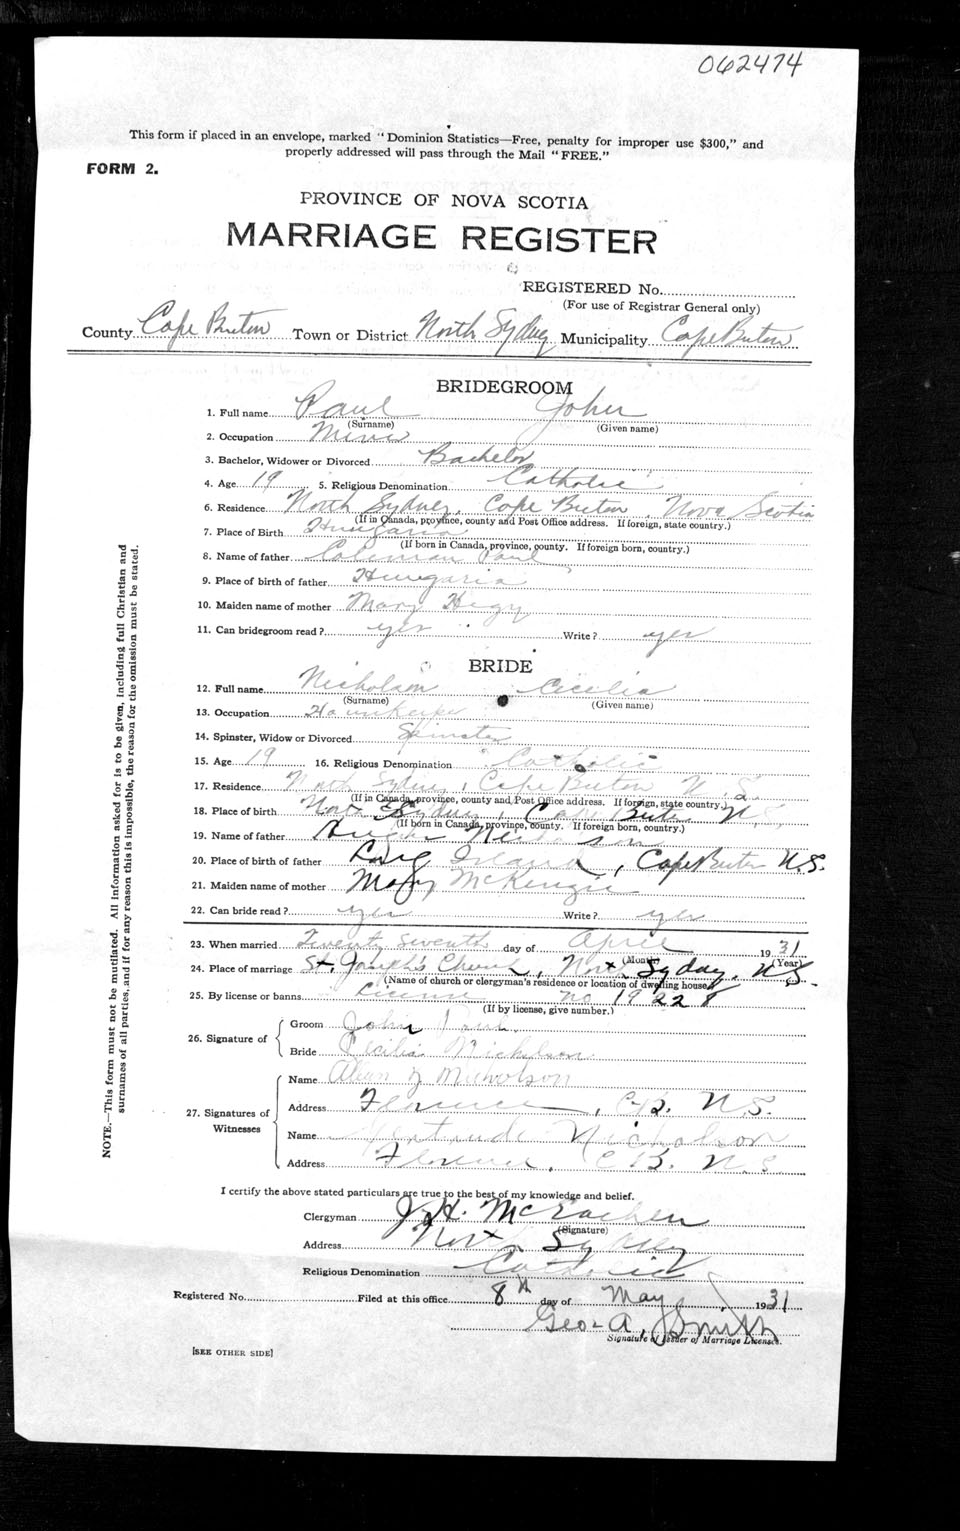 062474
This form if placed in an envelope, marked "Dominion Statistics—Free, penalty for improper use $300," and
properly addressed will pass through the Mail "FREE."
FORM 2.
PROVINCE OF NOVA SCOTIA
MARRIAGE REGISTER
REGISTERED No.
(For use of Registrar General only)
County Cape Breton Town or District North Sydney Municipality Cape Breton
BRIDEGROOM
1. Full name Paul John
(Surname) (Given name)
2. Occupation Miner
3. Bachelor, Widower or Divorced Bachelor
4. Age 19 5. Religious Denomination Catholic
6. Residence North Sydney, Cape Breton, Nova Scotia
(If in Canada, province, county and Post Office address. If foreign, state country.)
7. Place of Birth Hungaria
(If born in Canada, province, county. If foreign born, country.)
8. Name of father Coleman Paul
9. Place of birth of father Hungaria
10. Maiden name of mother Mary Hegy
11. Can bridegroom read? yes Write? yes
BRIDE
12. Full name Nicholson Cecilia
(Surname) (Given name)
13. Occupation Housekeeper
14. Spinster, Widow or Divorced Spinster
15. Age 19 16. Religious Denomination Catholic
17. Residence North Sydney, Cape Breton N. S.
(If in Canada, province, county and Post Office address. If foreign, state country.)
18. Place of birth North Sydney, Cape Breton N.S.
(If born in Canada, province, county. If foreign born, country.)
19. Name of father Nicholson
20. Place of birth of father Long Island, Cape Breton N.S.
21. Maiden name of mother Mary McKenzie
22. Can bride read? yes Write? yes
23. When married Twenty seventh day of April 1931
(Month) (Year)
24. Place of marriage St. Joseph's Church, North Sydney, N.S.
(Name of church or clergyman's residence or location of dwelling house)
25. By license or banns License no 19228
(If by license, give number.)
26. Signature of
Groom John Paul
Bride Cecilia Nicholson
27. Signatures of Witnesses
Name Nicholson
Address Florence, C.B. N.S.
Name Gertrude Nicholson
Address Florence, C.B. N.S.
I certify the above stated particulars are true to the best of my knowledge and belief.
Clergyman J. H. McEachen
(Signature)
Address North Sydney
Religious Denomination Catholic
Registered No. Filed at this office 8th day of May 1931
Geo. A. Smith
Signature of Issuer of Marriage Licenses.
[SEE OTHER SIDE]
NOTE.—This form must not be mutilated. All information asked for is to be given, including full Christian and
surnames of all parties, and if for any reason this is impossible, the reason for the omission must be stated.